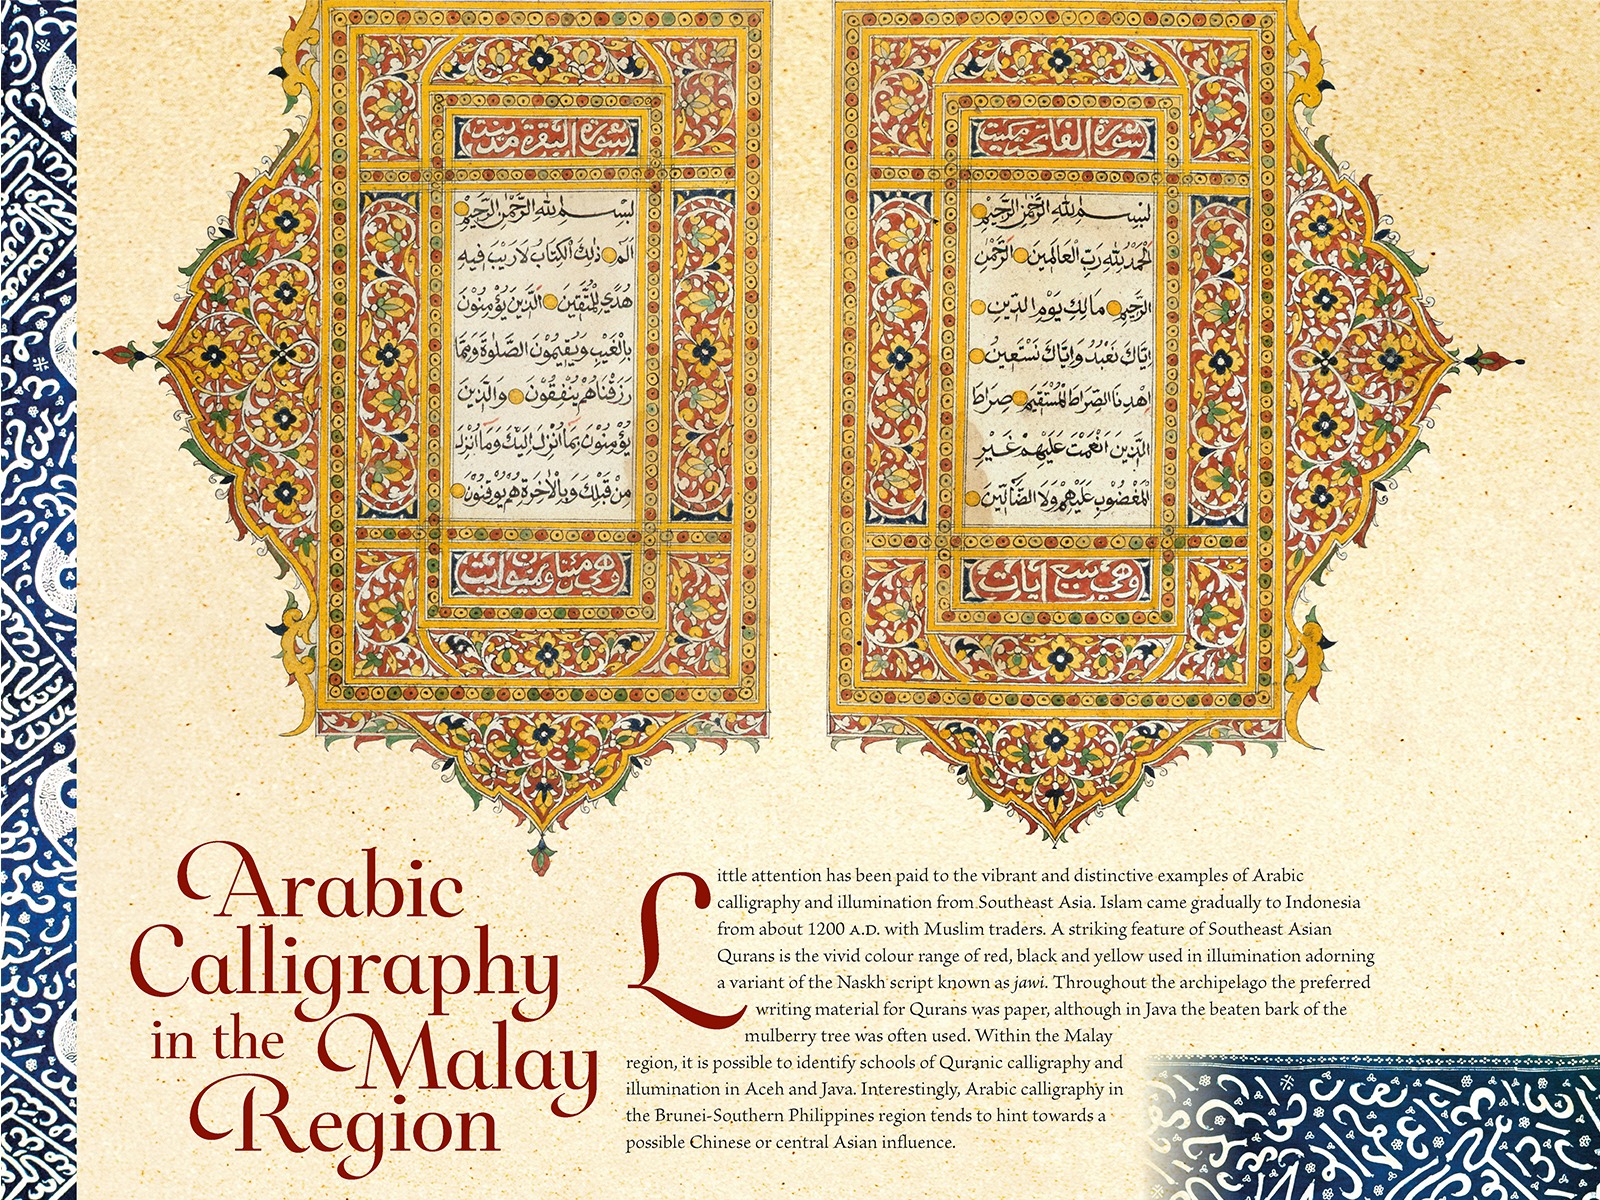 سورة الفاتحة مكية
بسم الله الرحمن الرحيم
الحمد لله رب العالمين الرحمن
الرحيم مالك يوم الدين
اياك نعبد واياك نستعين
اهدنا الصراط المستقيم صراط
الذين انعمت عليهم غير
المغضوب عليهم ولا الضآلين
وهي سبع ايات
سورة البقرة مدينة
بسم الله الرحمن الرحيم
الم ذلك الكتاب لا ريب فيه
هدى للمتقين الذين يؤمنون
بالغيب ويقيمون الصلوة ومما
رزقناهم ينفقون والذين
يؤمنون بما انزل اليك وما انزل
من قبلك وبالاخرة هم يوقنون
Arabic
Calligraphy
in the Malay
Region
Little attention has been paid to the vibrant and distinctive examples of Arabic
calligraphy and illumination from Southeast Asia. Islam came gradually to Indonesia
from about 1200 A.D. with Muslim traders. A striking feature of Southeast Asian
Qurans is the vivid colour range of red, black and yellow used in illumination adorning
a variant of the Naskh script known as jawi. Throughout the archipelago the preferred
writing material for Qurans was paper, although in Java the beaten bark of the
mulberry tree was often used. Within the Malay
region, it is possible to identify schools of Quranic calligraphy and
illumination in Aceh and Java. Interestingly, Arabic calligraphy in
the Brunei-Southern Philippines region tends to hint towards a
possible Chinese or central Asian influence.